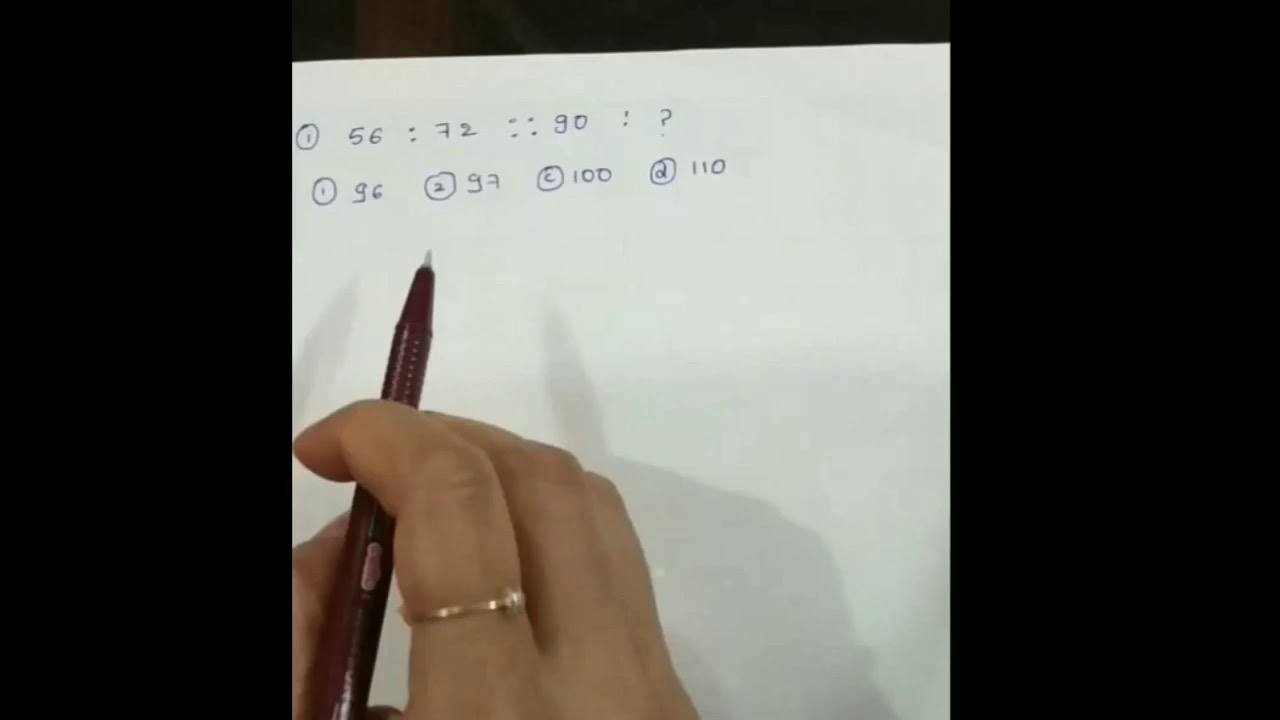 ① 56 : 72 :: 90 : ?
① 96 ② 97 ⓒ 100 ⓓ 110